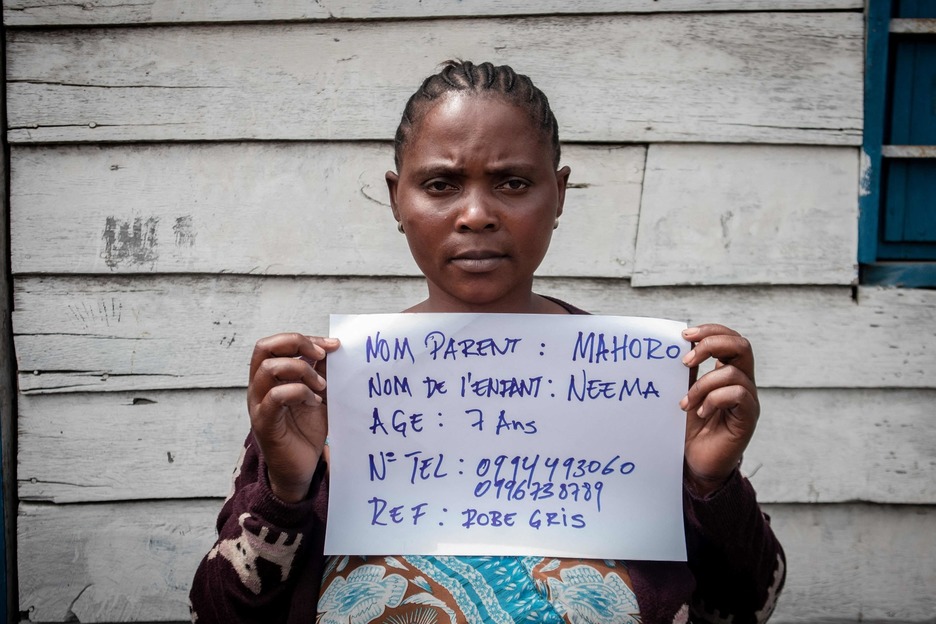 NOM PARENT : MAHORO
NOM DE l'ENFANT : NEEMA
AGE : 7 Ans
N= TEL : 0994493060
0996738789
REF : ROBE GRIS